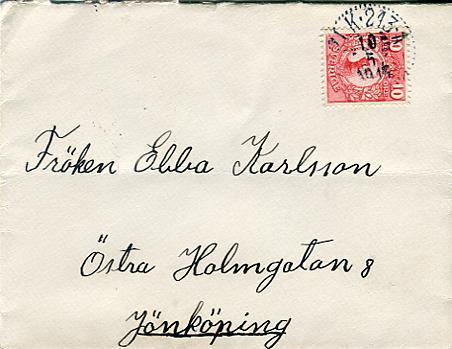 PKP 213
10
5
Fröken Ebba Karlsson
Östra Holmgatan 8
Jönköping